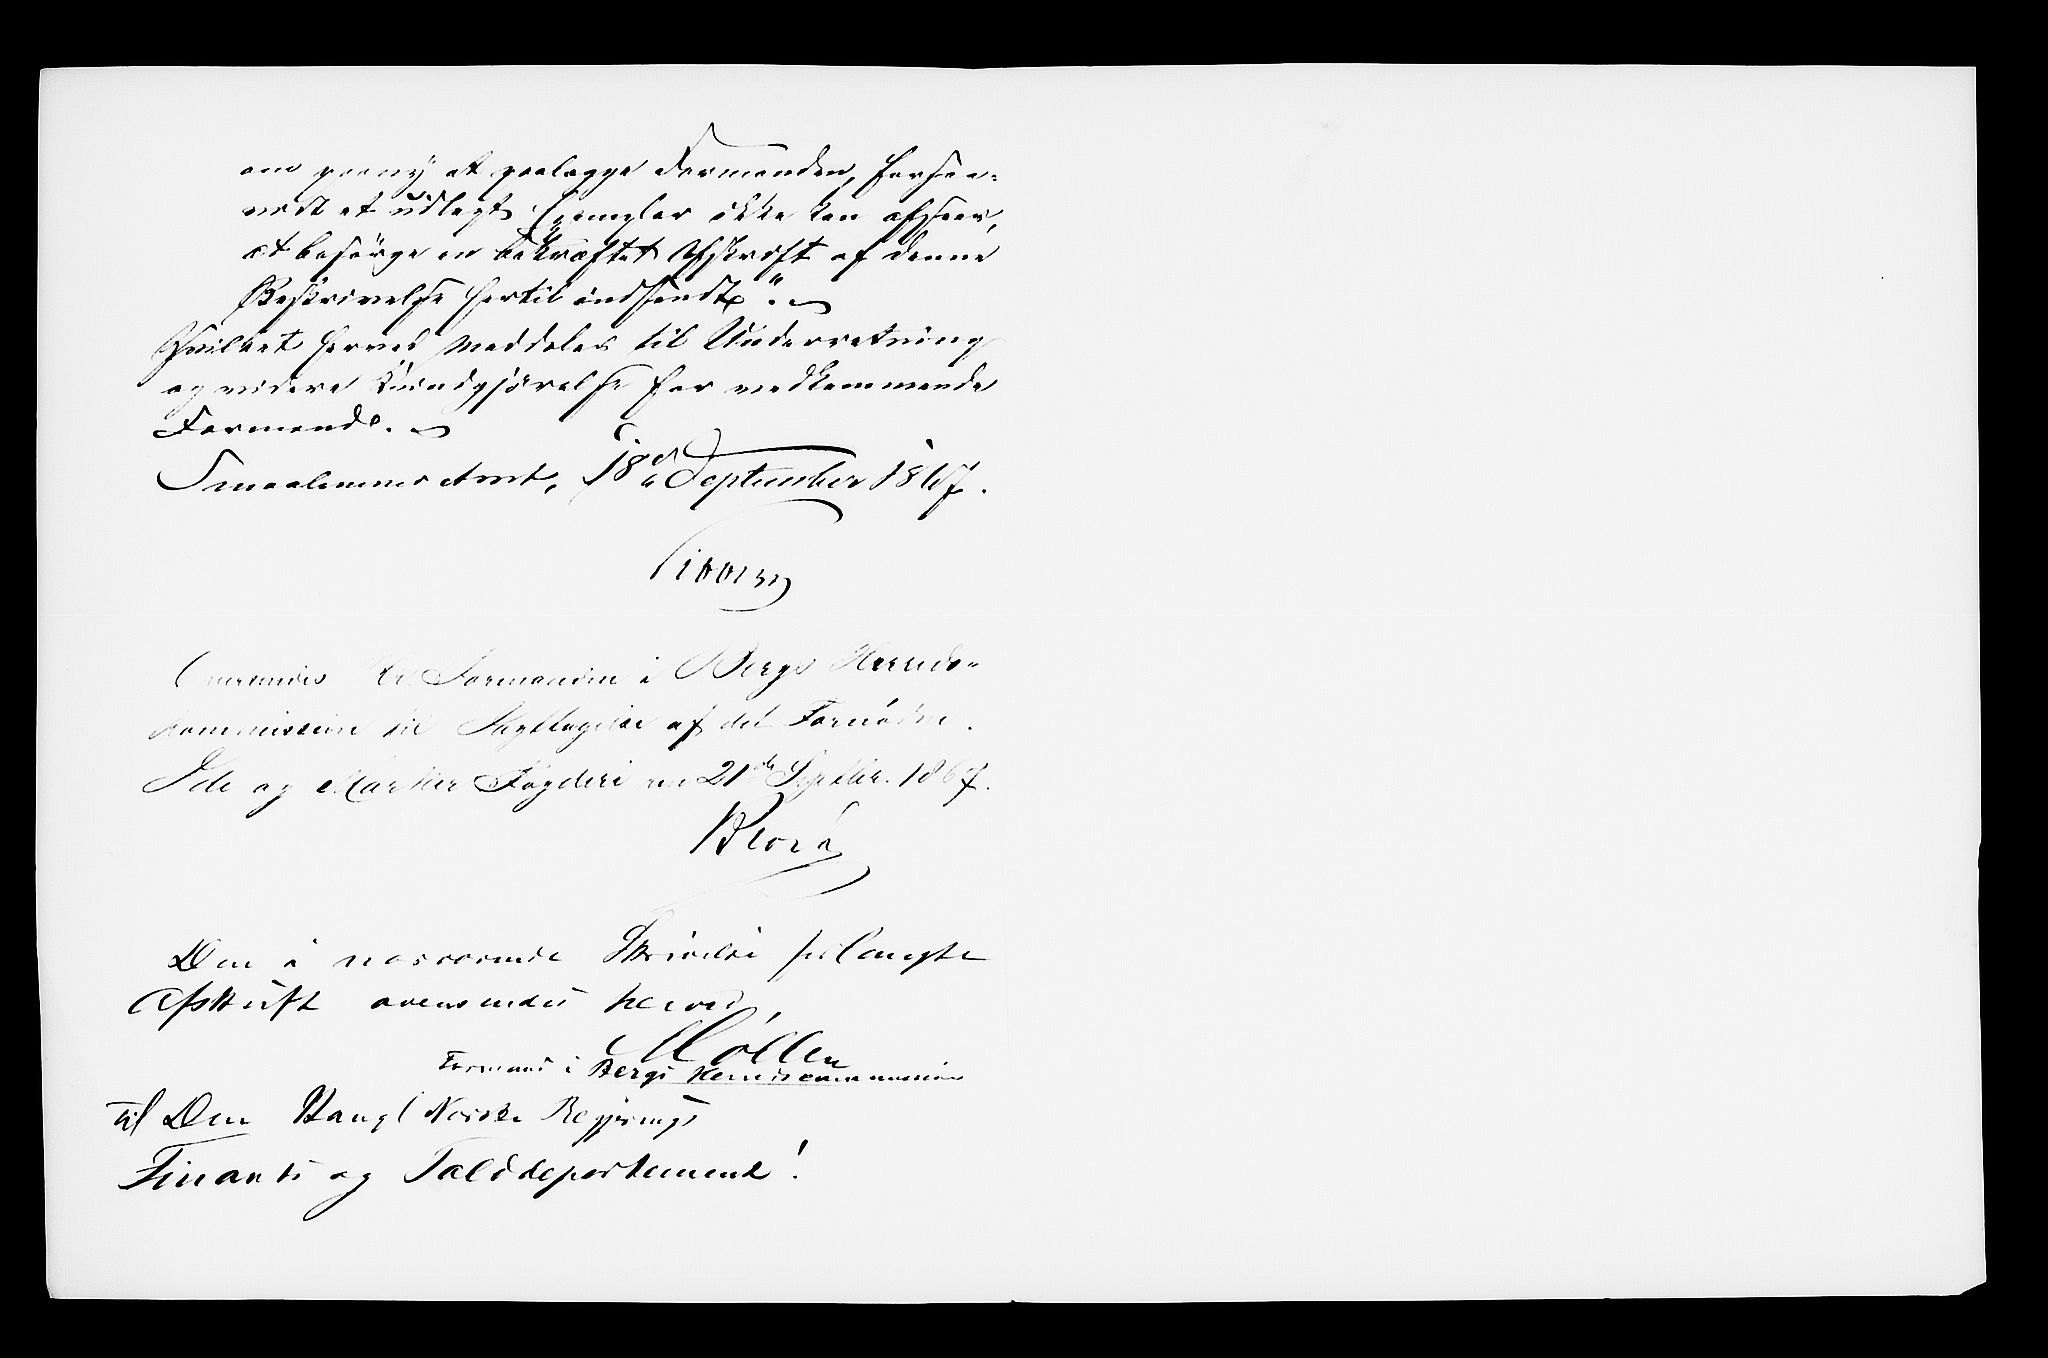 om paany at paalægge Formanden, forsaa-
vidt et udlagt Exemplar ikke kan afsees,
at besørge en bekræftet Afskrift af denne
Beskrivelse hertil indsendt". 
Hvilket herved meddeles til Underretning
og videre Kundgjørelse for vedkommende
Formænd.
Smaalenenes Amt, 18de September 1867.
Sibbern
Omsendes til Formanden i Bergs Herreds-
kommission til Iagttagelse af det Fornødne.
Ide og Marker Fogderi den 21de Septbr. 1867.
Den i nærværende Skrivelse forlangte
Afskrift oversendes herved,
Møller
Formand i Bergs Herredscommission
Til Den Kongl Norske Regjerings
Finants og Tolddepartement!